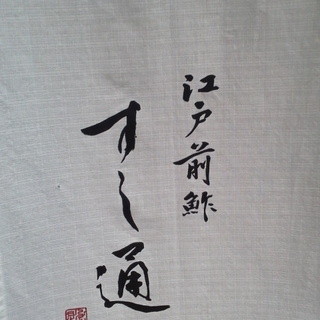 江戸前鮓
すし通